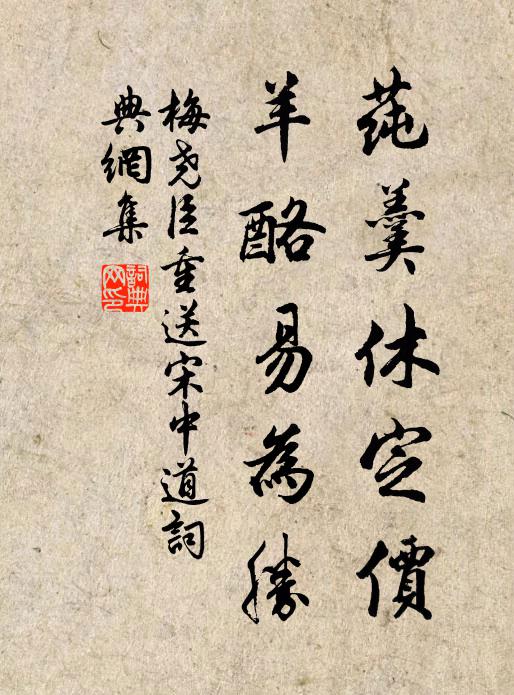 莼羹休定價
羊酪易為勝
梅尧臣重送宋中道詞
典網集
詞典
网印